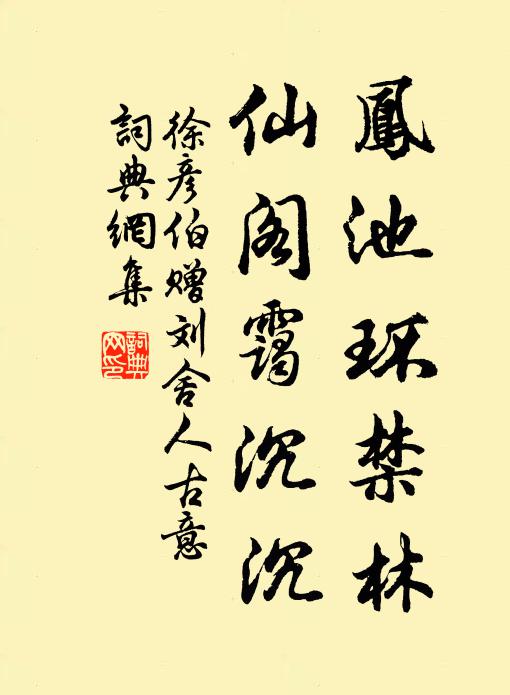 鳳池环禁林
仙阁霭沉沉
徐彦伯赠刘舍人古意
詞典網集
詞典
网印